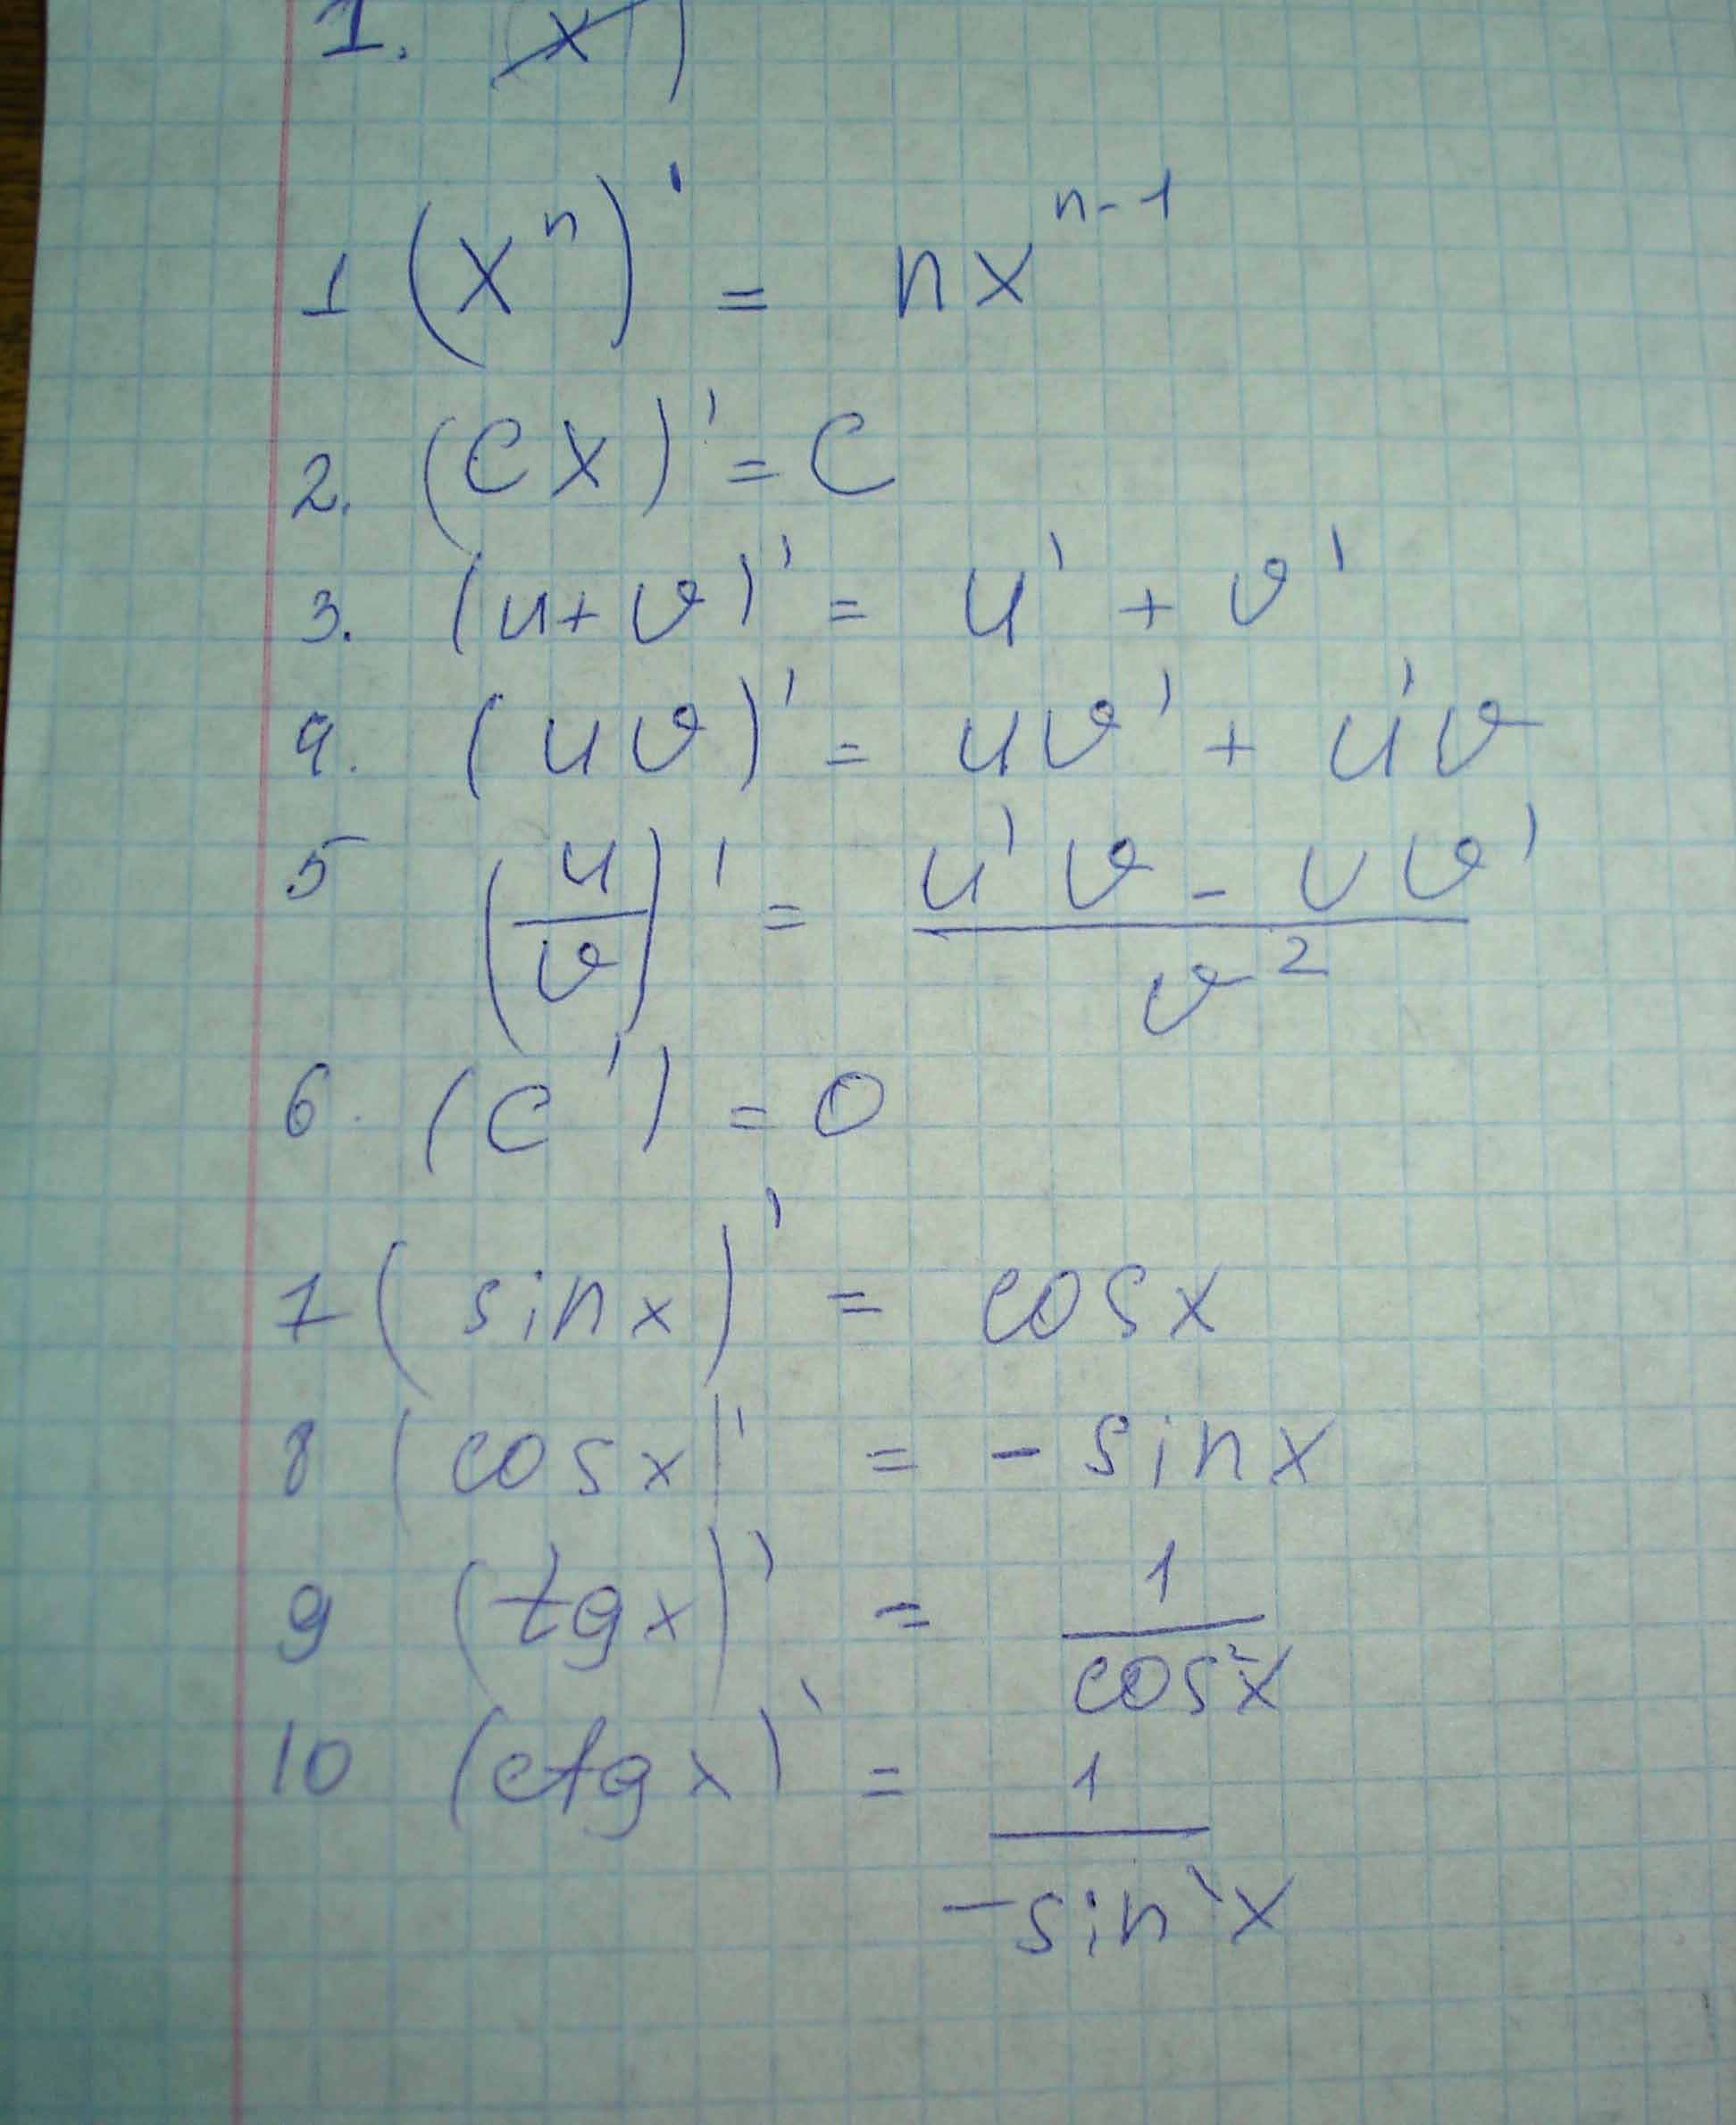 1. (x)
1 (x^n)' = nx^{n-1}
2. (cx)' = c
3. (u+v)' = u' + v'
4. (uv)' = uv' + u'v
5 (u/v)' = (u'v - uv')/v^2
6. (c') = 0
7 (sinx)' = cosx
8 (cosx)' = - sinx
9 (tgx)' = 1/cos^2x
10 (ctgx)' = 1/-sin^2x